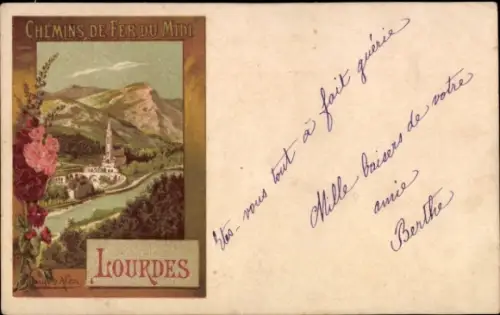 CHEMINS DE FER DU MIDI
LOURDES
Etes-vous tout à fait guérie
Mille baisers de votre
amie
Berthe